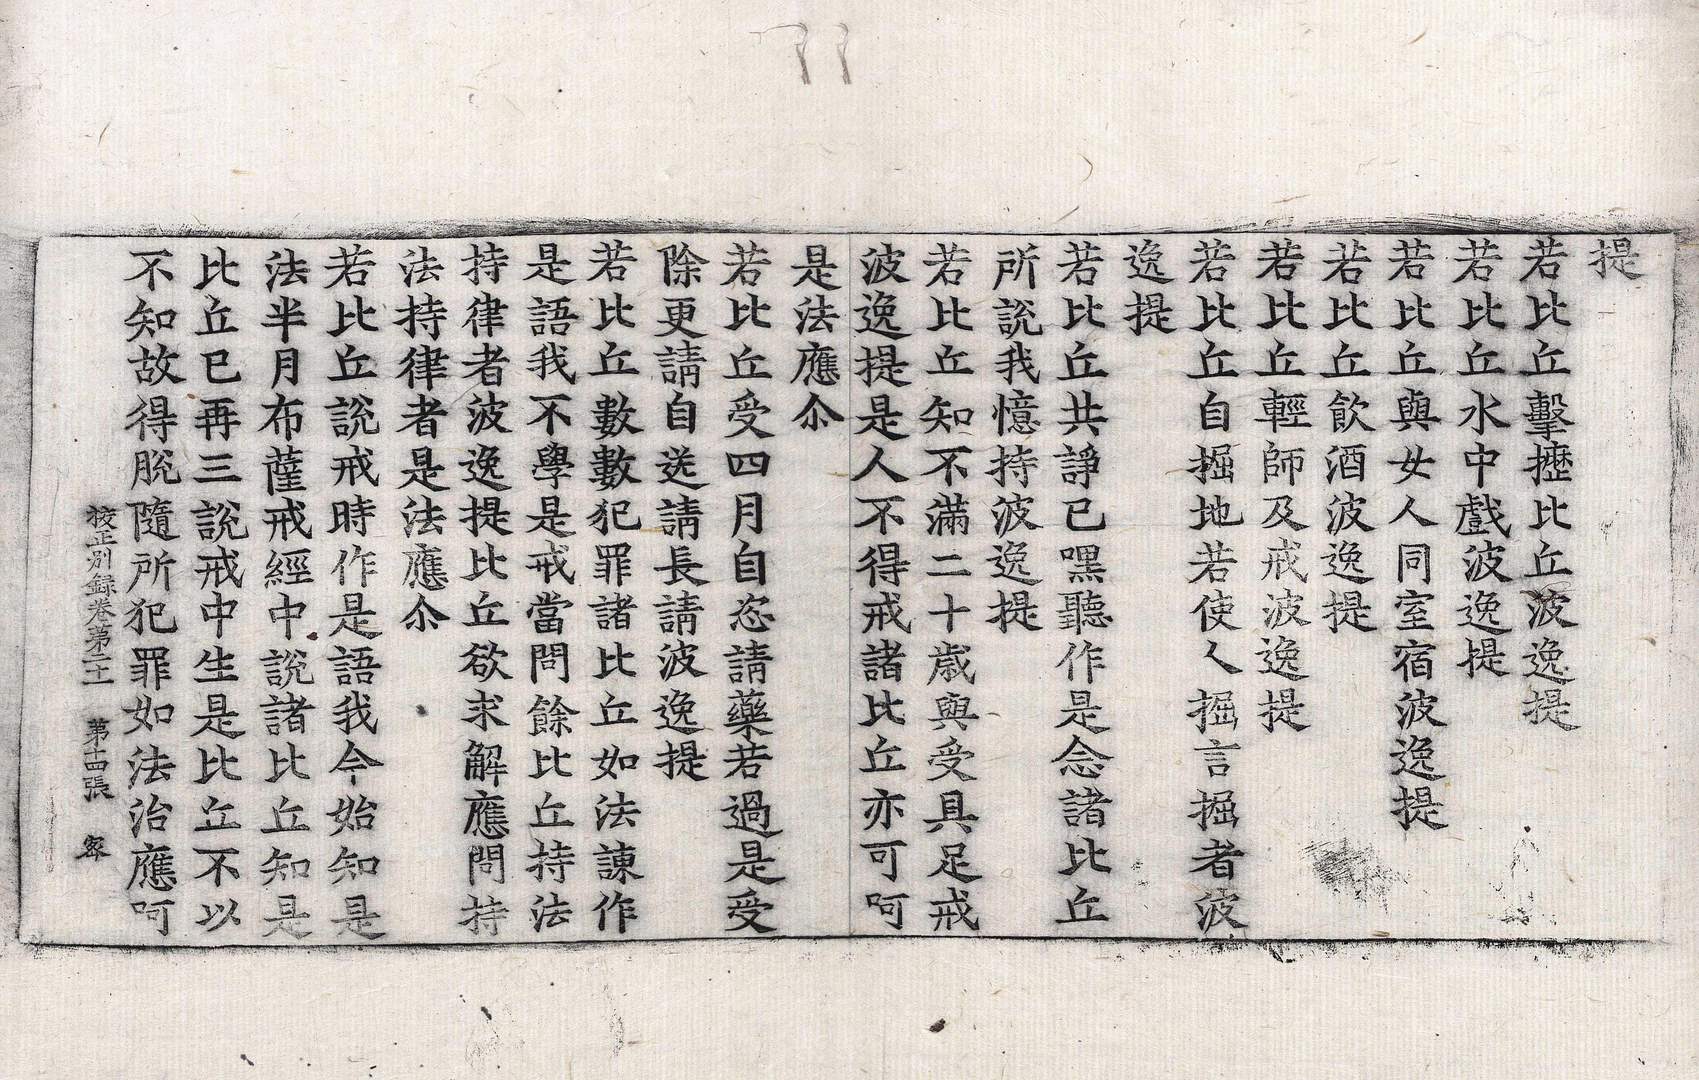 提
若比丘擊攊比丘波逸提
若比丘水中戲波逸提
若比丘與女人同室宿波逸提
若比丘飮酒波逸提
若比丘輕師及戒波逸提
若比丘自掘地若使人掘言掘者波
逸提
若比丘共諍已嘿聽作是念諸比丘
所說我憶持波逸提
若比丘知不滿二十歲與受具足戒
波逸提是人不得戒諸比丘亦可呵
是法應尒
若比丘受四月自恣請藥若過是受
除更請自送請長請波逸提
若比丘數數犯罪諸比丘如法諫作
是語我不學是戒當問餘比丘持法
持律者波逸提比丘欲求解應問持
法持律者是法應尒
若比丘說戒時作是語我今始知是
法半月布薩戒經中說諸比丘知是
比丘已再三說戒中生是比丘不以
不知故得脫隨所犯罪如法治應呵
校正別錄卷第二十 第十四張 密